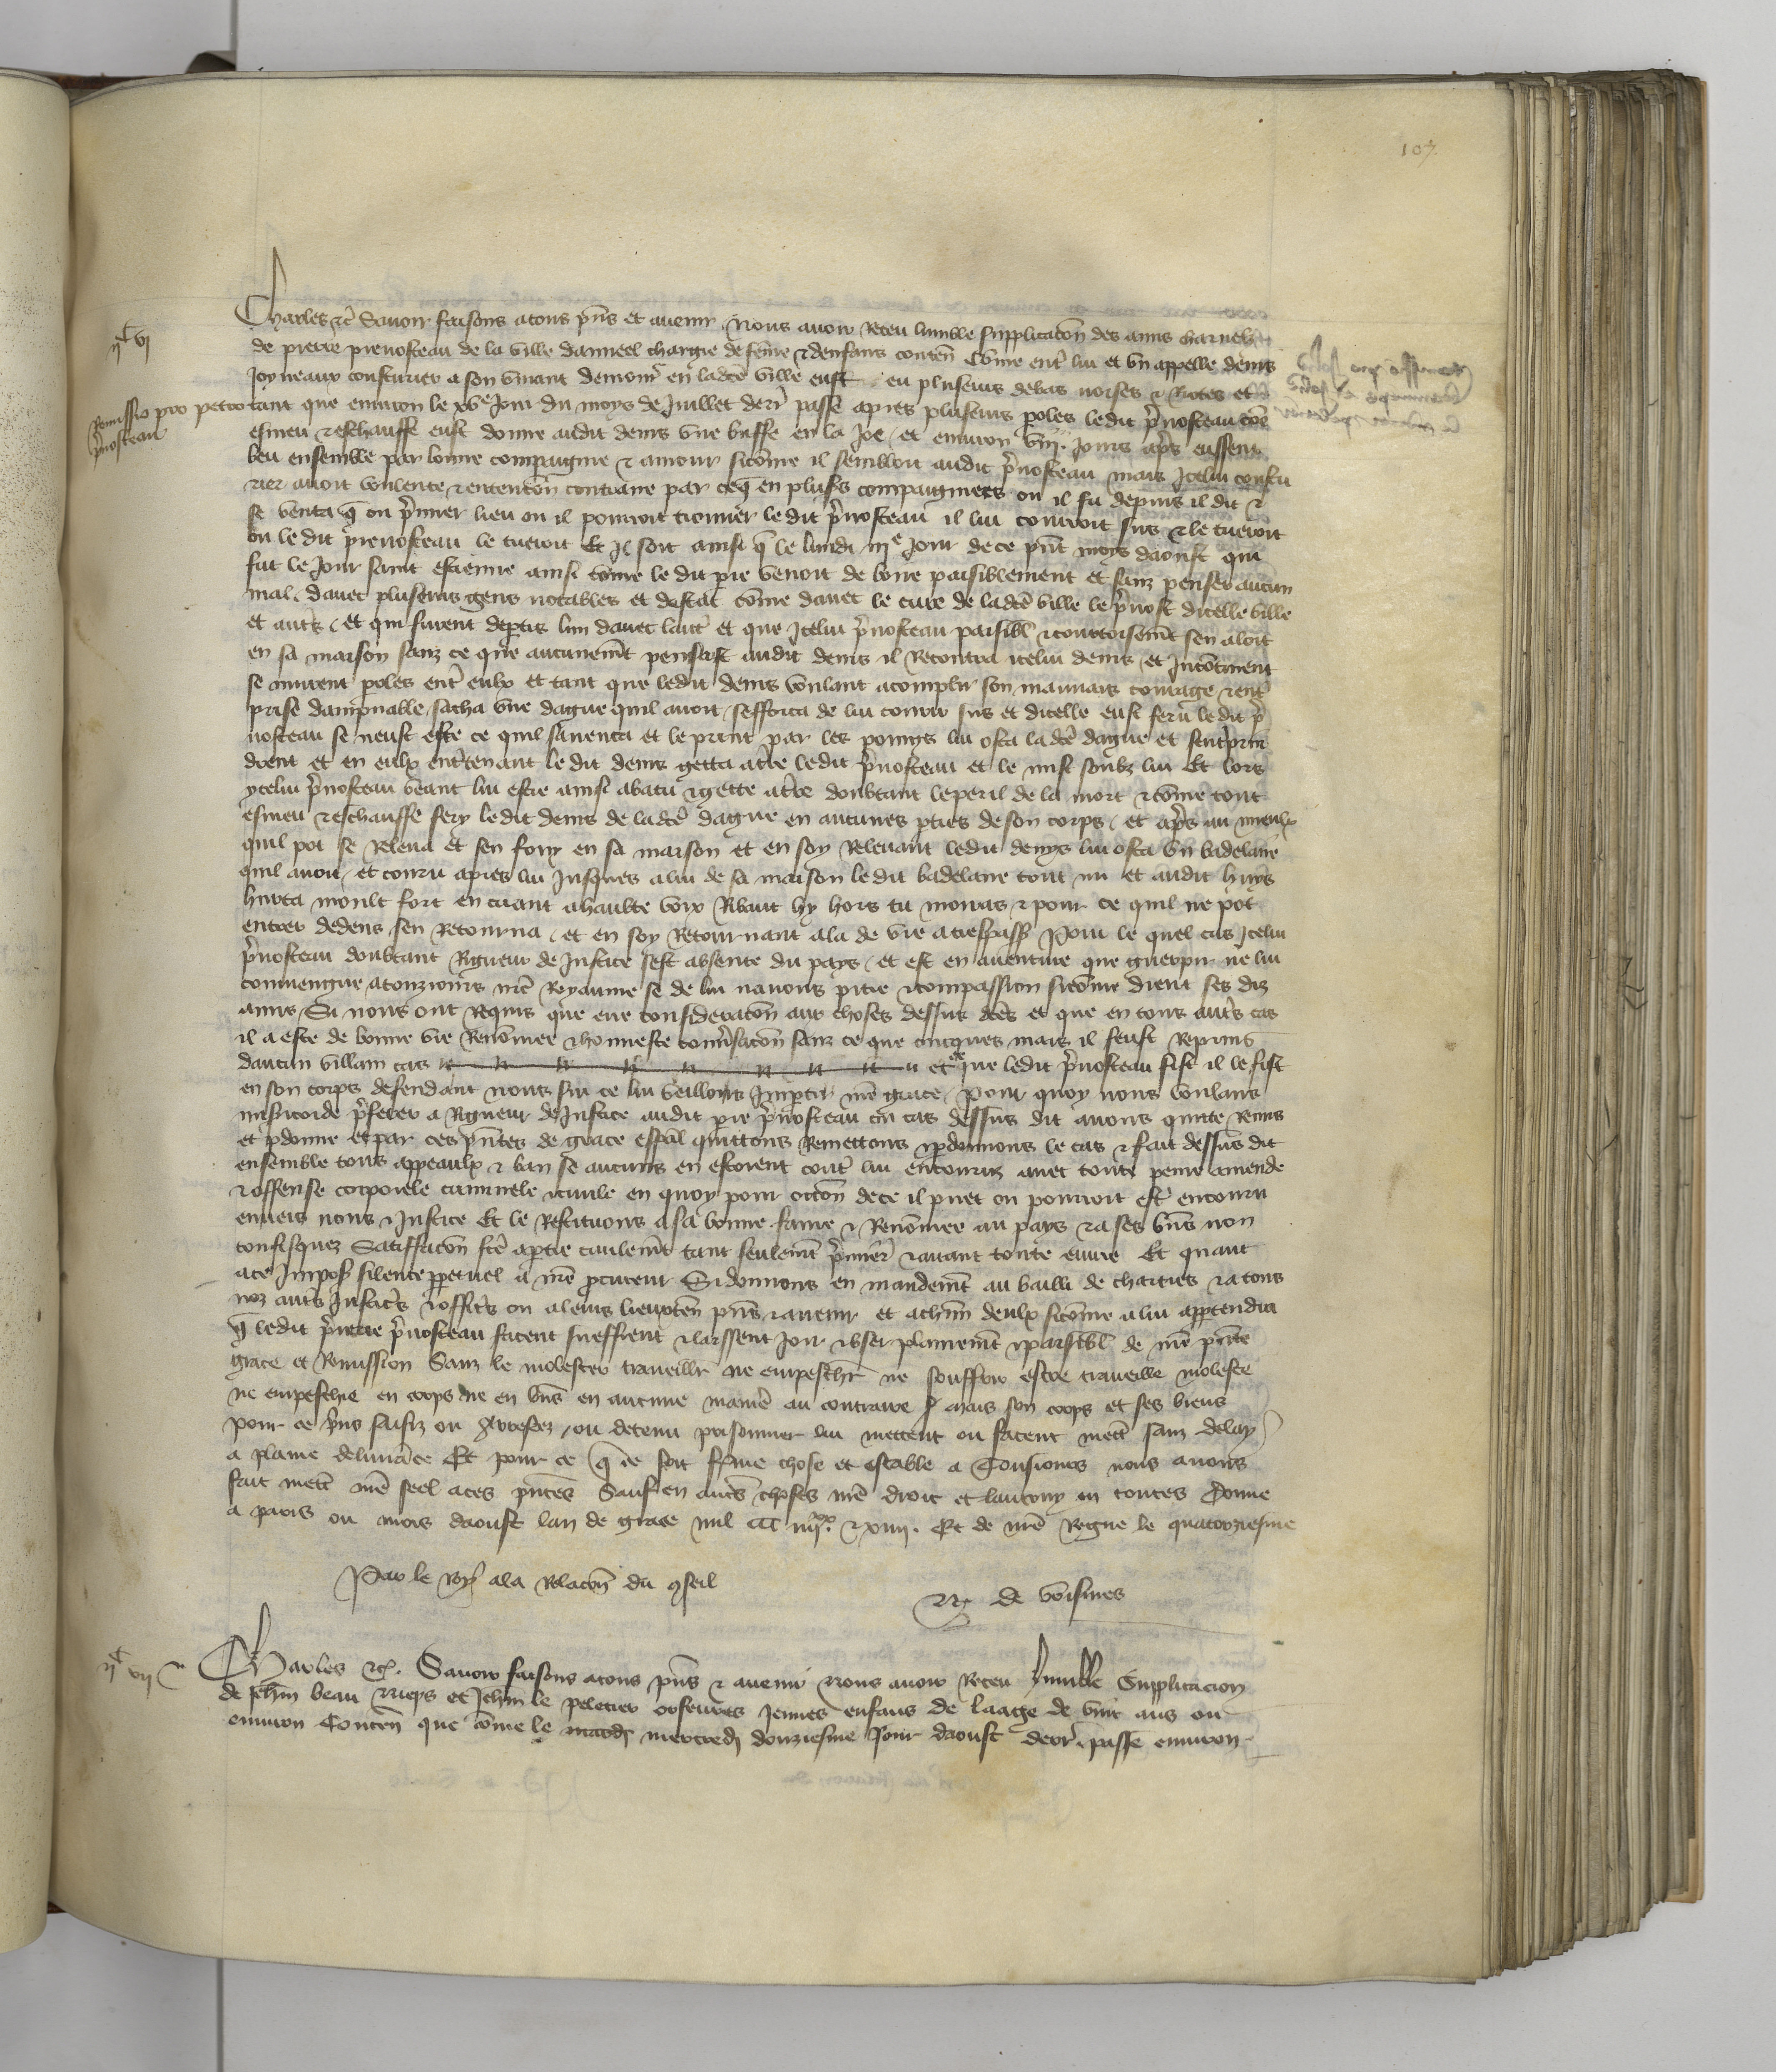 107
Charles etc Savoir faisons a tous pñs et avenir Nous avoir Receu humble supplicacoñ des amis charnelz
de pierre prevosteau de la ville danneel chargie de feme & denfans conteñ Come entr lui et vn appelle denis
Joyneaux cousturier a son vivant demour en ladce ville eust eu pluseurs debas noises & Riotes et
tant que environ le xve Jour du moys de Juillet derr passe apres pluseurs poles ledit prvosteau coe
esmeu & eschauffe eust donne audit denis vne buffe en la Joe et environ viij. Jours aprs eussent
beu ensemble par bonne compaignie & amour sicome il sembloit audit prvosteau mais Icelui coustu
rier avoit voulente & entencoñ contraire par ce q en plusrs compaignies ou il fu depuis il dit &
se venta q ou prmier lieu ou il pourroit trouver le dit prvosteau il lui courroit sus & le tueroit
ou le dit prevosteau le tueroit Et Il soit ainsi q le lundi iije Jour de ce pñt moys daoust qui
fut le Jour saint estienne ainsi come le dit pre venoit de boire paisiblement et sanz penser aucun
mal davec pluseurs gens notables et destat come davec le cure de ladce ville le prvost dicelle ville
et autrs et qui furent deptis lun davec lautr et que Icelui prvosteau paisibl & courtoisemt sen aloit
en sa maison sanz ce que aucunemt pensast audit denis il Recontra icelui denis et Incotinent
se murent poles entr eulx et tant que ledit denis voulant acomplir son mauvais courage & entr
prise dampnable sacha vne dague quil avoit sefforca de lui courir sus et dicelle eust feru ledit pr
vosteau se neust este ce quil savenca et le print par les poings lui osta ladce dague et sentrprin
drent et en eulx entrtenant le dit denis getta atrre ledit prvosteau et le mist soubz lui Et lors
ycelui prvosteau veant lui estre ainsi abatu & gette atrre doubtant le peril de la mort & come tout
esmeu & eschauffe fery ledit denis de ladce dague en aucunes pties de son corps et aprs au mieulx
quil pot se Releva et sen fouy en sa maison et en soy Relevant ledit denys lui osta vn badelaire
quil avoit et couru apres lui Jusques a lui de sa maison ledit badelaire tout nu et audit huys
hurta moult fort en criant a haulte voix Ribaut hy hors tu mourras & pour ce quil ne pot
entrer dedens sen Retourna et en soy Retournant ala de vie a trespass Pour le quel cas Icelui
prvosteau doubtant Rigueur de Justice sest absente du pays et est en aventure que guerpir ne lui
conviengne a touzjours nre Royaume se de lui navons pitie & compassion sicome dient ses diz
amis Si nous ont Requis que eue consideracoñ aux choses dessus dces et que en tous autrs cas
il a este de bonne vie Renommee & honneste convrsacoñ sanz ce que oncques mais il feust Reprins
daucun villain cas et que ce que ledit prvosteau fist il le fist
en son corps defendant nous sur ce lui veillons Impartir nre grace Pour quoy nous voulans
misricorde prferer a Rigueur de Justice audit pre prvosteau ou cas dessus dit avons quitte Remis
et pdonne et par ces pñtes de grace espal quittons Remettons & pdonnons le cas & fait dessus dit
ensemble tous appeaulx & ban se aucuns en estoient contr lui encouruz avec toute peine amende
& offense corporele criminele & civile en quoy pour occoñ de ce il puet ou pourroit estr encouru
envers nous & Justice Et le Restituons a sa bonne fame & Renommee au pays & a ses bñs non
confisquez Satiffacoñ fce aptie civilemt tant seulemt prmier & avant toute euvre Et quant
a ce Imposs silence ppetuel a nre pcureur Si donnons en mandemt au bailli de chartres & a tous
noz autrs Justicrs & officrs ou a leurs lieuxteñ pñs & avenir et a chm deulx sicome a lui appartendra
q ledit pierre prvosteau facent sueffrent & laissent Joir & user plainemt & paisibl de nre pñte
grace et Remission Sanz le molester traveillr ne empeschr ne souffrir estre traveille moleste
ne empeschie en corps ne en bñs en aucune maniere au contraire mais son corps et ses biens
pour ce prins saisiz ou Arrestez ou detenu prisonnier lui mettent ou facent mettr sanz delay
a plaine delivrance Et pour ce q ce soit ferme chose et estable a Tousjours nous avons
fait mettr nre seel a ces pñtes Sauf en autrs choses nre droit et lautruy en toutes Donne
a paris ou mois daoust lan de grace mil CCC iiijxx & xiiij. Et de nre Regne le quatorziesme
Par le Roy a la Relacoñ du cseil
N de voisines
ijc vj
Remissio pro petro
prvosteau
ijc vij
Charles etc. Savoir faisons a tous pñs & avenir Nous avoir Receu humble Supplicacion
de Jehan beau Nieps et Jehan le peletier orfevres Jeunes enfans de laage de vint ans ou
environ Conteñ que come le mardi mercredi douziesme Jour daoust derr passe environ